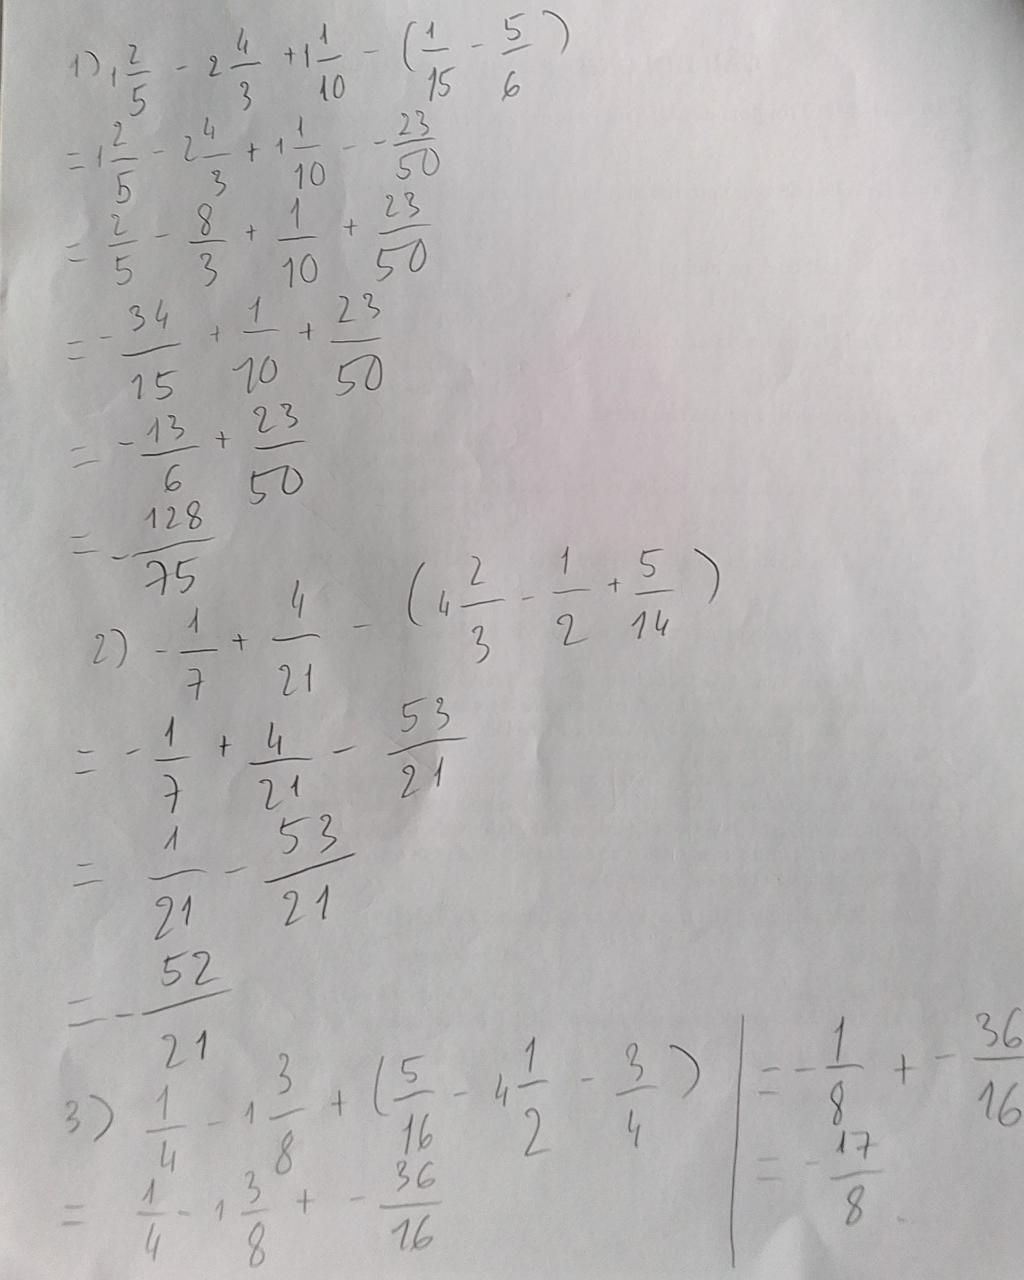 1) 1 2/5 - 2 4/3 + 1 1/10 - (1/15 - 5/6)
= 1 2/5 - 2 4/3 + 1 1/10 - - 23/50
= 2/5 - 8/3 + 1/10 + 23/50
= - 34/15 + 1/10 + 23/50
= - 13/6 + 23/50
= - 128/75
2) - 1/7 + 4/21 - (4 2/3 - 1/2 + 5/14)
= - 1/7 + 4/21 - 53/21
= 1/21 - 53/21
= - 52/21
3) 1/4 - 1 3/8 + (5/16 - 4 1/2 - 3/4)
= 1/4 - 1 3/8 + - 36/16
= - 1/8 + - 36/16
= - 17/8